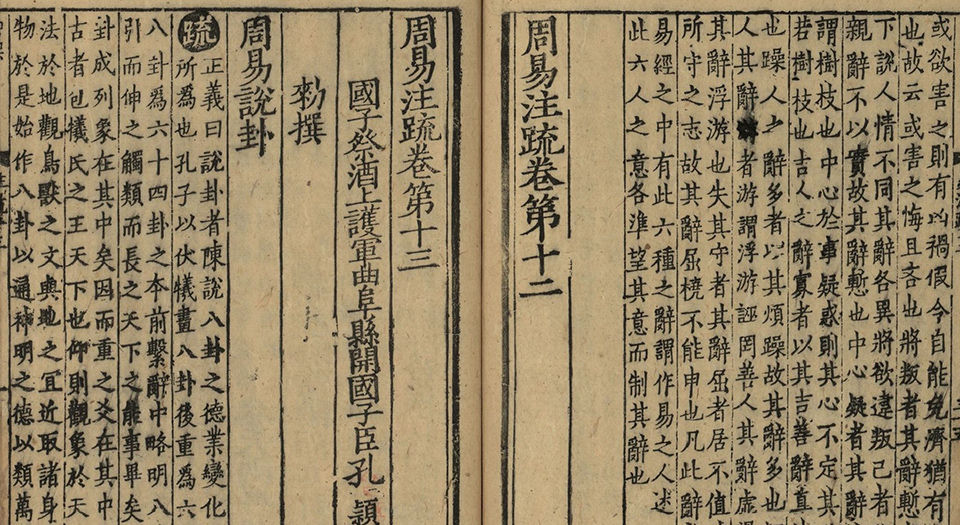 或欲害之則有凶禍假令自能免濟猶有
也故云或害之悔且吝也將叛者其辭慙
下說人情不同其辭各異將欲違叛己者
親辭不以實故其辭慙也中心疑者其辭
謂樹枝也中心於事疑惑則其心不定其
若樹枝也吉人之辭寡者以其吉善辭直
也躁人之辭多者以其煩躁故其辭多也
人其辭者游謂浮游誣罔善人其辭虛
其辭浮游也失其守者其辭屈者居不值
所守之志故其辭屈橈不能申也凡此辭
易經之中有此六種之辭謂作易之人述
此六人之意各準望其意而制其辭也
周易注疏卷第十二
周易注疏卷第十三
國子祭酒上護軍曲阜縣開國子臣孔穎
勑撰
周易說卦
疏正義曰說卦者陳說八卦之德業變化
所為也孔子以伏犧畫八卦後重為六
八卦為六十四卦之本前繫辭中略明八
引而伸之觸類而長之天下之能事畢矣
卦成列象在其中矣因而重之爻在其中
古者包犧氏之王天下也仰則觀象於天
法於地觀鳥獸之文輿地之宜近取諸身
物於是始作八卦以通神明之德以類萬